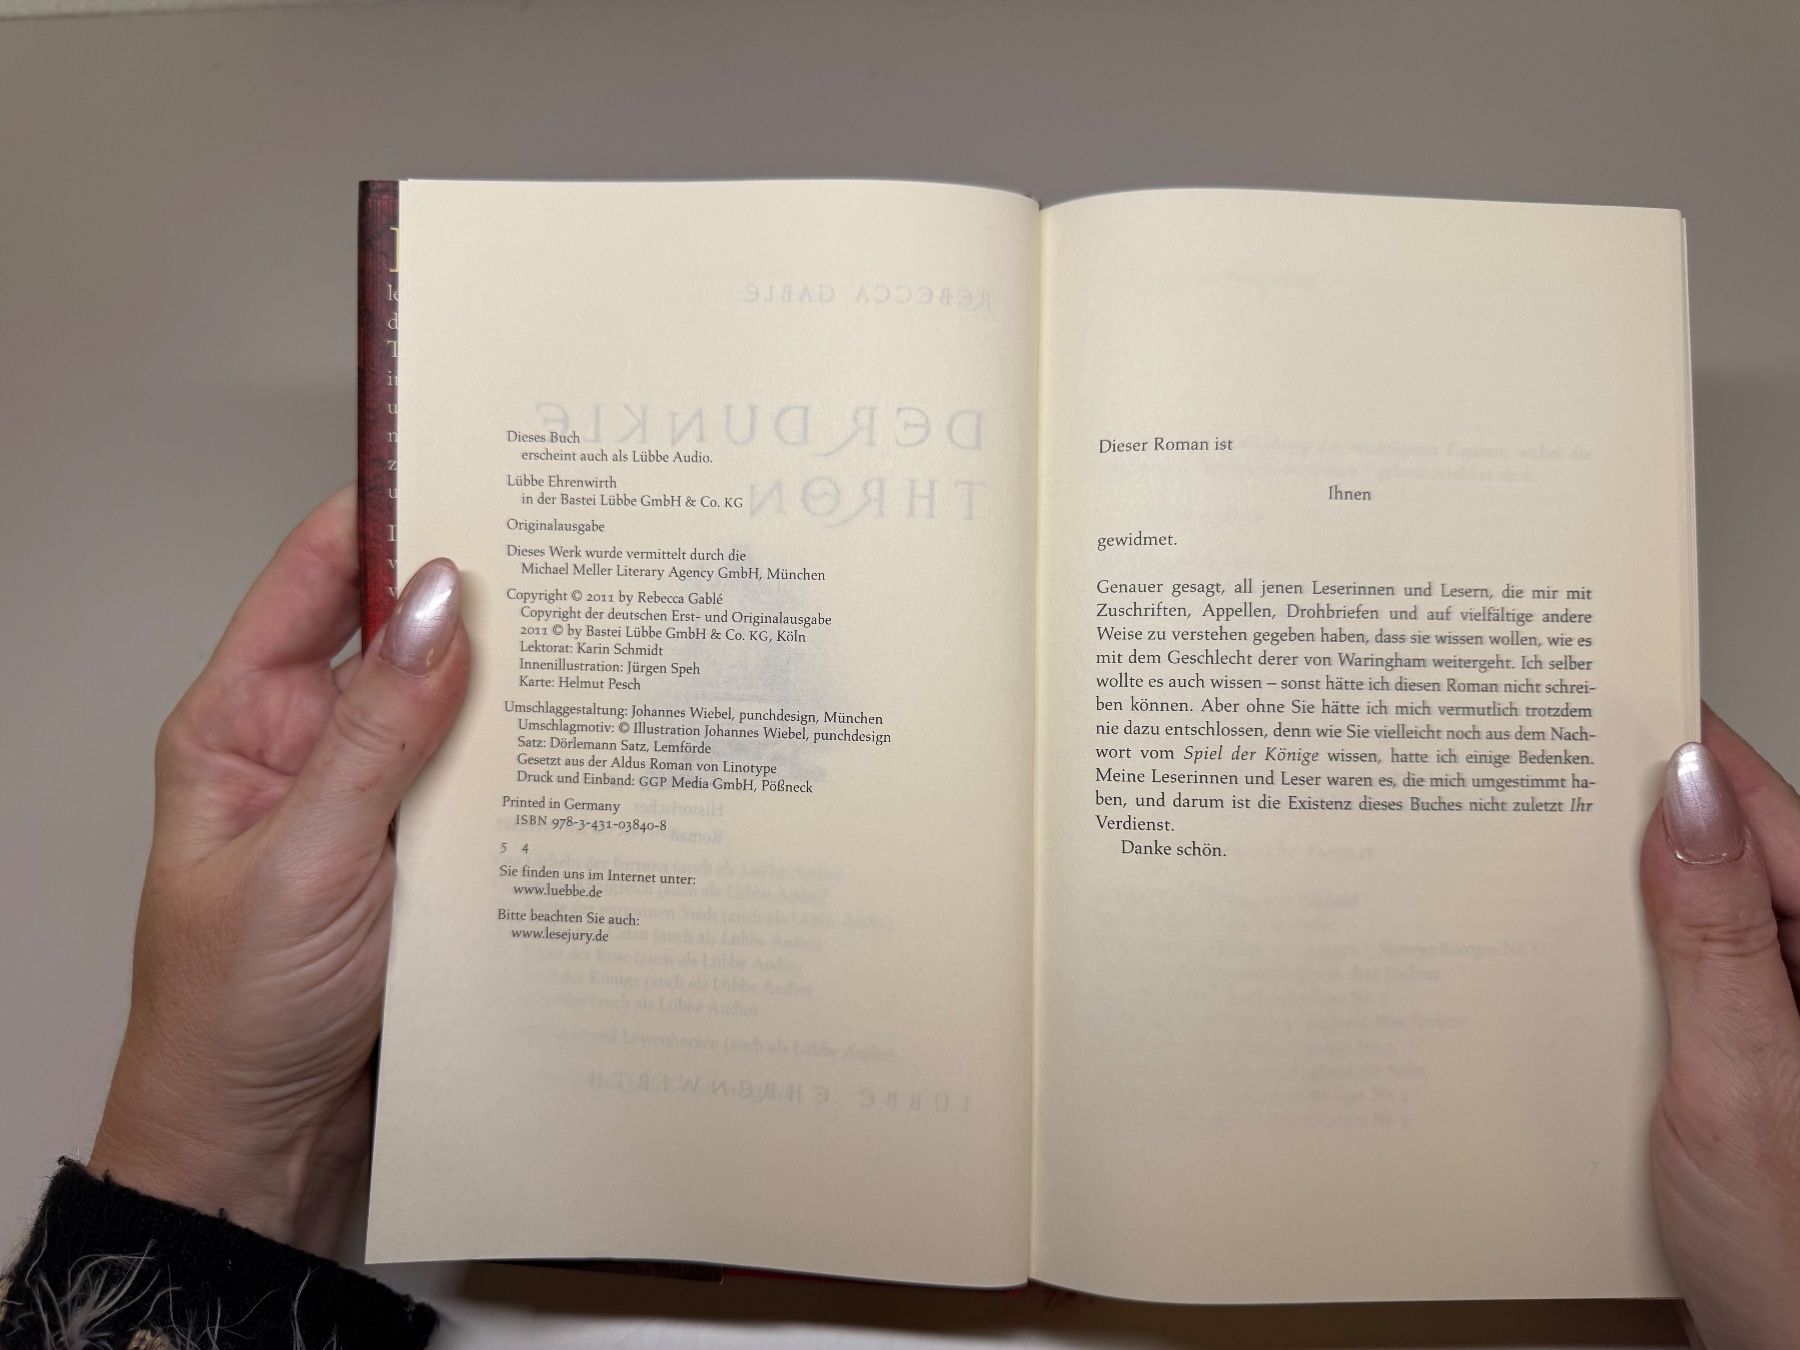 Dieses Buch
erscheint auch als Lübbe Audio.
Lübbe Ehrenwirth
in der Bastei Lübbe GmbH & Co. KG
Originalausgabe
Dieses Werk wurde vermittelt durch die
Michael Meller Literary Agency GmbH, München
Copyright © 2011 by Rebecca Gablé
Copyright der deutschen Erst- und Originalausgabe
2011 © by Bastei Lübbe GmbH & Co. KG, Köln
Lektorat: Karin Schmidt
Innenillustration: Jürgen Speh
Karte: Helmut Pesch
Umschlaggestaltung: Johannes Wiebel, punchdesign, München
Umschlagmotiv: © Illustration Johannes Wiebel, punchdesign
Satz: Dörlemann Satz, Lemförde
Gesetzt aus der Aldus Roman von Linotype
Druck und Einband: GGP Media GmbH, Pößneck
Printed in Germany
ISBN 978-3-431-03840-8
5 4
Sie finden uns im Internet unter:
www.luebbe.de
Bitte beachten Sie auch:
www.lesejury.de
REBECCA GABLÉ
DER DUNKLE
THRON
Historischer
Roman
LÜBBE EHRENWIRTH
Dieser Roman ist
Ihnen
gewidmet.
Genauer gesagt, all jenen Leserinnen und Lesern, die mir mit
Zuschriften, Appellen, Drohbriefen und auf vielfältige andere
Weise zu verstehen gegeben haben, dass sie wissen wollen, wie es
mit dem Geschlecht derer von Waringham weitergeht. Ich selber
wollte es auch wissen – sonst hätte ich diesen Roman nicht schrei-
ben können. Aber ohne Sie hätte ich mich vermutlich trotzdem
nie dazu entschlossen, denn wie Sie vielleicht noch aus dem Nach-
wort vom Spiel der Könige wissen, hatte ich einige Bedenken.
Meine Leserinnen und Leser waren es, die mich umgestimmt ha-
ben, und darum ist die Existenz dieses Buches nicht zuletzt Ihr
Verdienst.
Danke schön.